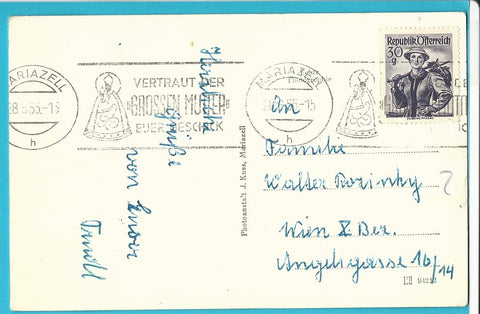 MARIAZELL
28.5.55.-15
h
VERTRAUT DER
GROSSEN MUTTER
EUER GESCHICK
MARIAZELL
-15
h
Republik Österreich
30
g
Herzliche
Grüße
von
Photoanstalt J. Kuss, Mariazell
An
Familie
Walter Rozinky
Wien X Bez.
Angeligasse 16/14
94252